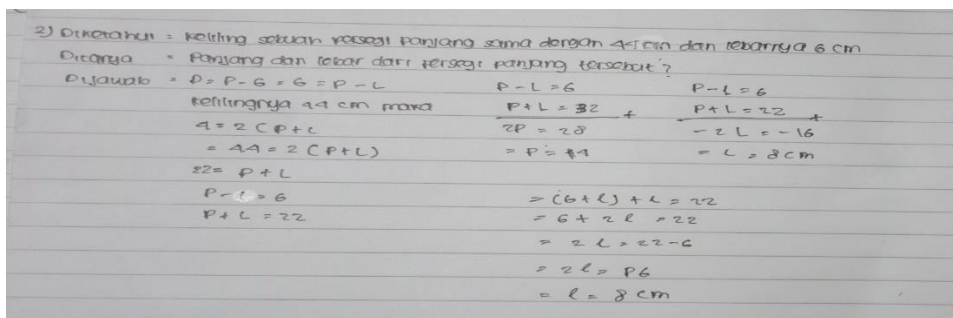 2) Diketahui = Keliling sebuah persegi panjang sama dengan 44 cm dan lebarnya 6 cm
Ditanya = Panjang dan lebar dari persegi panjang tersebut?
Dijawab = P = P - 6 = 6 = P - L
Kelilingnya 44 cm maka
4 = 2 (P + L
= 44 = 2 (P + L)
22 = P + L
P - L = 6
P + L = 22
P - L = 6
P + L = 32 +
2P = 28
= P = 14
P - L = 6
P + L = 22 +
- 2 L = - 16
= L = 8 cm
= (6 + l) + l = 22
= 6 + 2 l = 22
= 2 l = 22 - 6
= 2 l = P6
= l = 8 cm